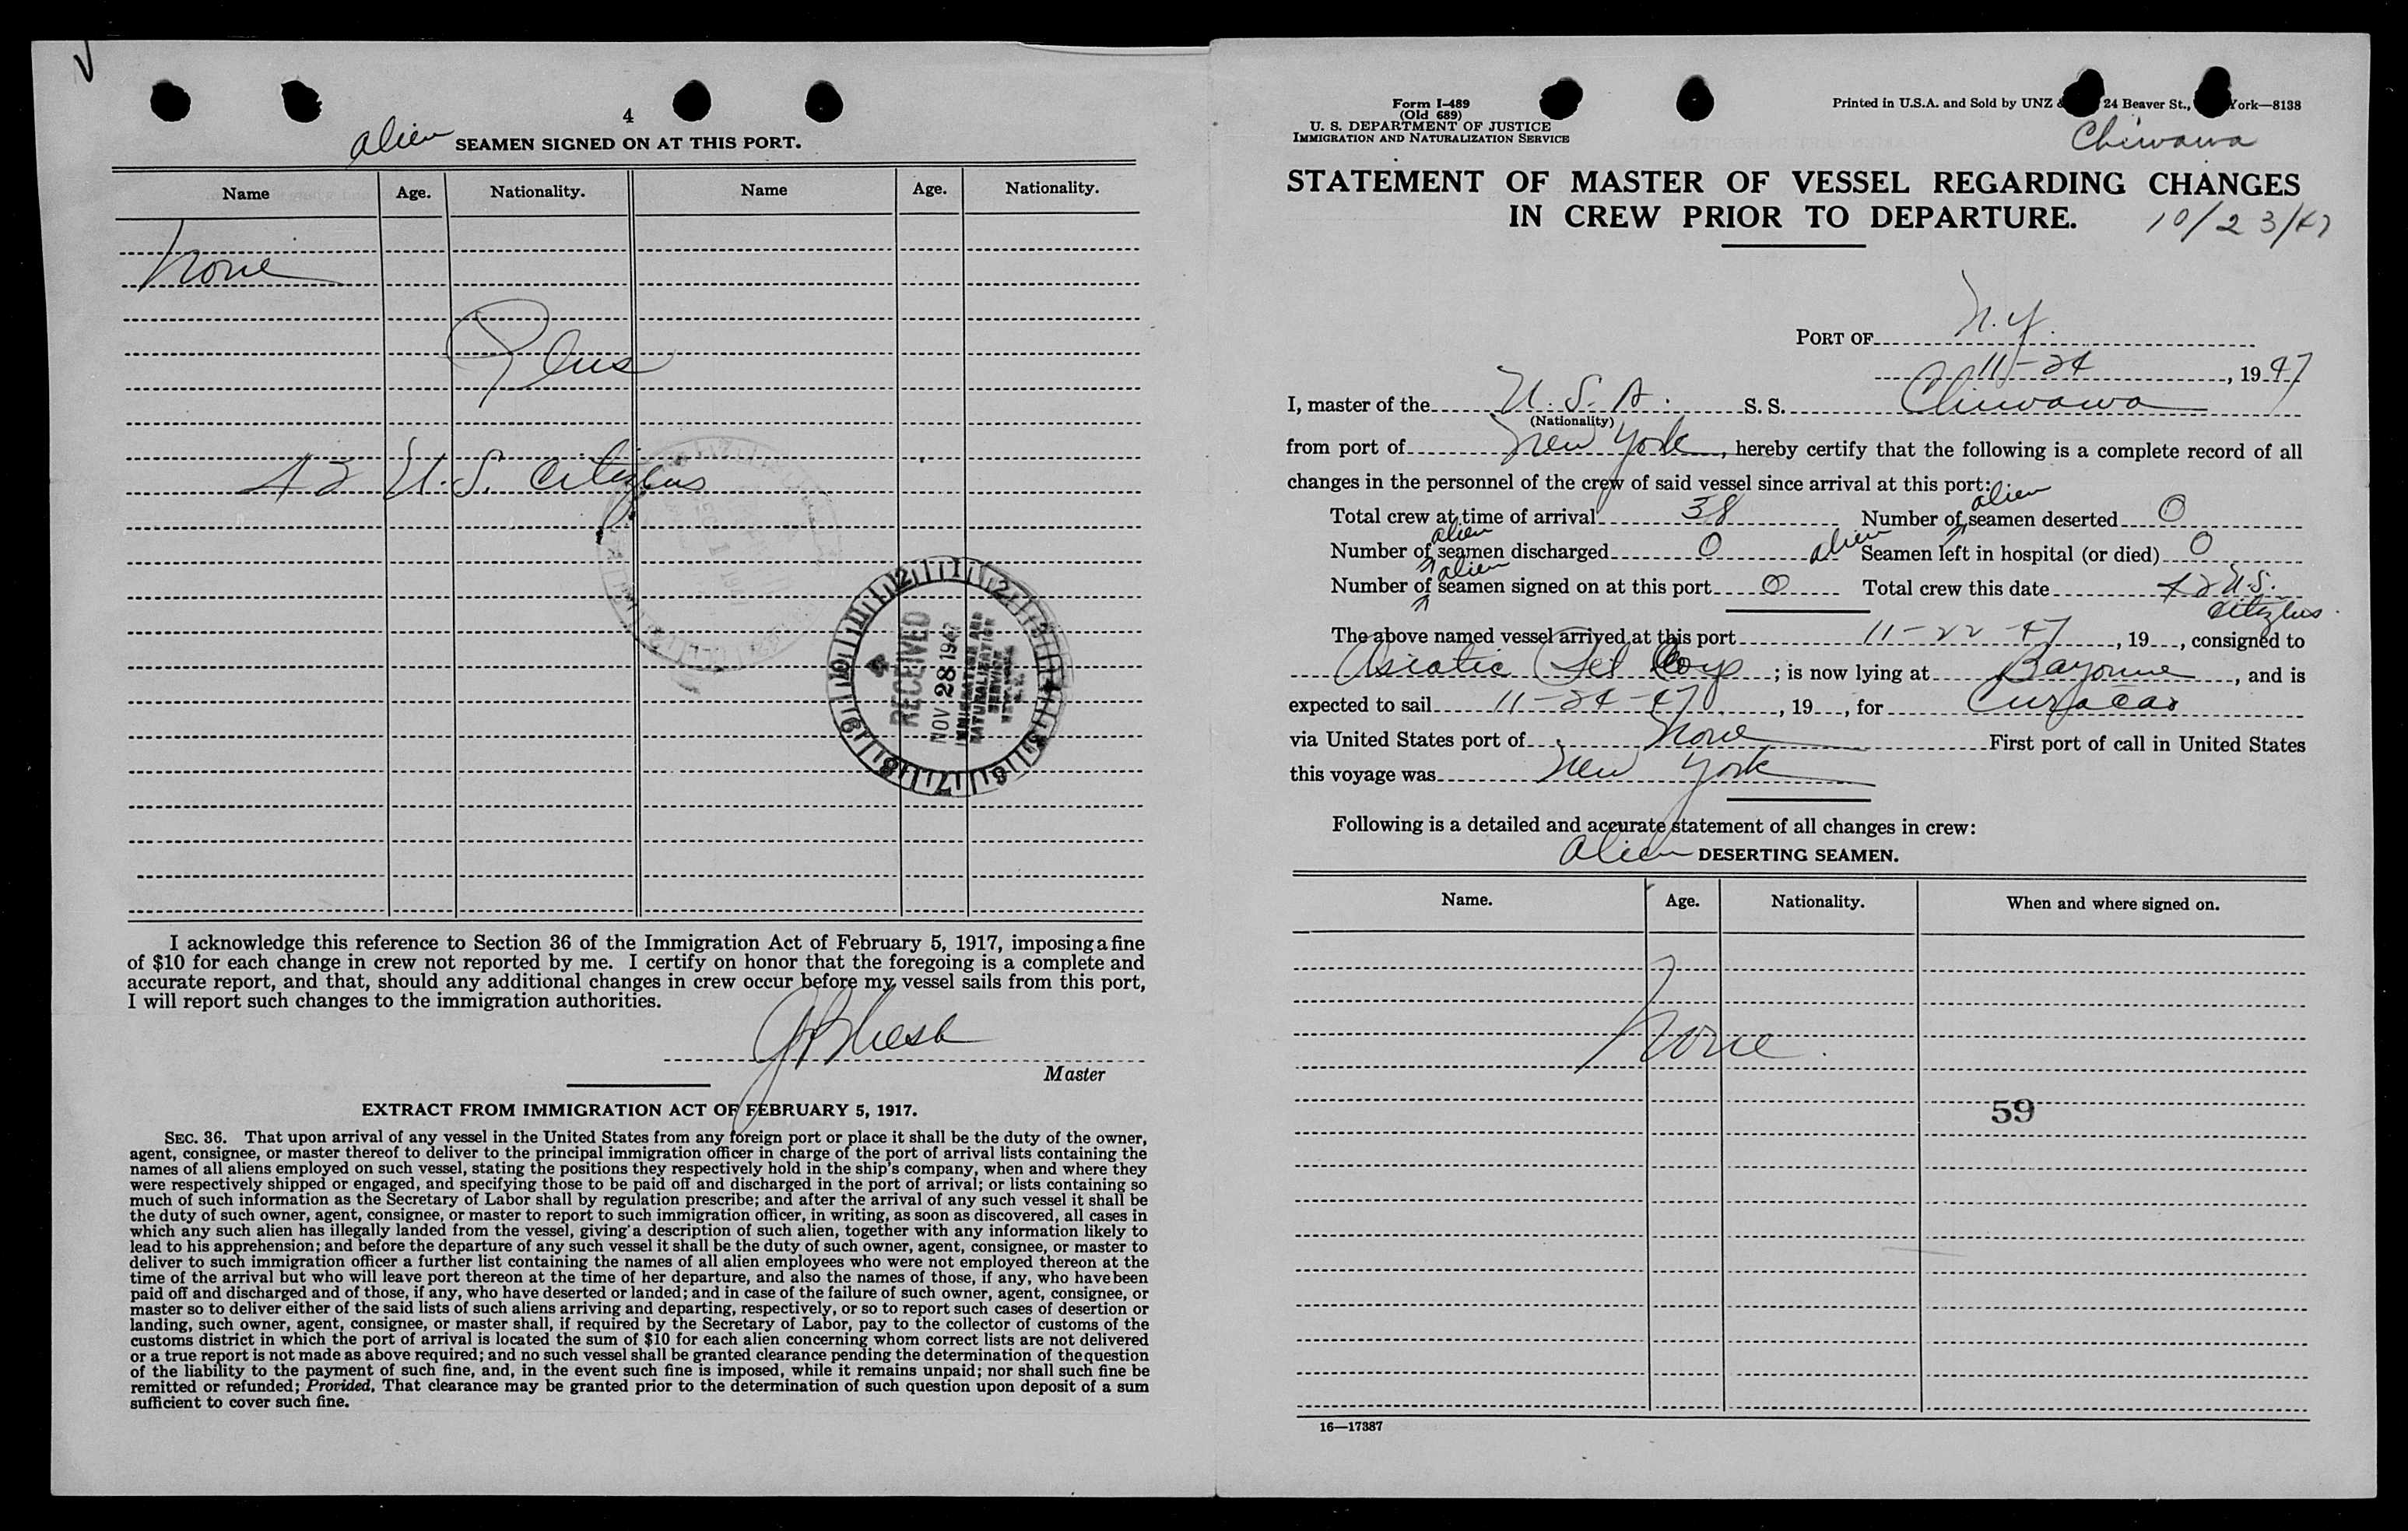 4
alien SEAMEN SIGNED ON AT THIS PORT.
Name Age. Nationality. Name Age. Nationality.
None
Plus
42 U.S. Citizens
RECEIVED
NOV 28 1947
IMMIGRATION AND
NATURALIZATION
SERVICE
I acknowledge this reference to Section 36 of the Immigration Act of February 5, 1917, imposing a fine
of $10 for each change in crew not reported by me. I certify on honor that the foregoing is a complete and
accurate report, and that, should any additional changes in crew occur before my vessel sails from this port,
I will report such changes to the immigration authorities.
Master
EXTRACT FROM IMMIGRATION ACT OF FEBRUARY 5, 1917.
SEC. 36. That upon arrival of any vessel in the United States from any foreign port or place it shall be the duty of the owner,
agent, consignee, or master thereof to deliver to the principal immigration officer in charge of the port of arrival lists containing the
names of all aliens employed on such vessel, stating the positions they respectively hold in the ship's company, when and where they
were respectively shipped or engaged, and specifying those to be paid off and discharged in the port of arrival; or lists containing so
much of such information as the Secretary of Labor shall by regulation prescribe; and after the arrival of any such vessel it shall be
the duty of such owner, agent, consignee, or master to report to such immigration officer, in writing, as soon as discovered, all cases in
which any such alien has illegally landed from the vessel, giving a description of such alien, together with any information likely to
lead to his apprehension; and before the departure of any such vessel it shall be the duty of such owner, agent, consignee, or master to
deliver to such immigration officer a further list containing the names of all alien employees who were not employed thereon at the
time of the arrival but who will leave port thereon at the time of her departure, and also the names of those, if any, who have been
paid off and discharged and of those, if any, who have deserted or landed; and in case of the failure of such owner, agent, consignee, or
master so to deliver either of the said lists of such aliens arriving and departing, respectively, or so to report such cases of desertion or
landing, such owner, agent, consignee, or master shall, if required by the Secretary of Labor, pay to the collector of customs of the
customs district in which the port of arrival is located the sum of $10 for each alien concerning whom correct lists are not delivered
or a true report is not made as above required; and no such vessel shall be granted clearance pending the determination of the question
of the liability to the payment of such fine, and, in the event such fine is imposed, while it remains unpaid; nor shall such fine be
remitted or refunded; Provided, That clearance may be granted prior to the determination of such question upon deposit of a sum
sufficient to cover such fine.
Form I-489
(Old 689)
U. S. DEPARTMENT OF JUSTICE
IMMIGRATION AND NATURALIZATION SERVICE
Printed in U.S.A. and Sold by UNZ & 24 Beaver St., York—8138
Chiwawa
STATEMENT OF MASTER OF VESSEL REGARDING CHANGES
IN CREW PRIOR TO DEPARTURE.
10/23/47
PORT OF N.Y.
11-24, 1947
I, master of the U.S.A. S. S. Chiwawa
(Nationality)
from port of New York, hereby certify that the following is a complete record of all
changes in the personnel of the crew of said vessel since arrival at this port:
Total crew at time of arrival 38 Number of alien seamen deserted 0
Number of alien seamen discharged 0 alien Seamen left in hospital (or died) 0
Number of alien seamen signed on at this port 0 Total crew this date 42 U.S. Citizens
The above named vessel arrived at this port 11-22-47, 19, consigned to
Asiatic Pet Corp; is now lying at Bayonne, and is
expected to sail 11-24-47, 19, for Curacao
via United States port of None First port of call in United States
this voyage was New York
Following is a detailed and accurate statement of all changes in crew:
Alien DESERTING SEAMEN.
Name. Age. Nationality. When and where signed on.
None
59
16—17387